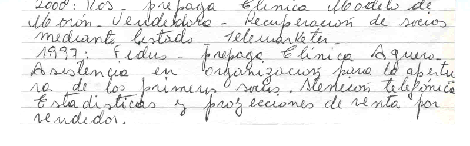 2000: Nos - prepaga Clinica Modelo de
Morón. Vendedora - Recuperacion de socios
mediante listado telemarketer
1997: Fidus - prepaga Clinica Aguero.
Asistencia en organizacion para la apertu
ra de los primeros socios. Atencion telefónica
Estadisticas y proyecciones de venta por
vendedor.